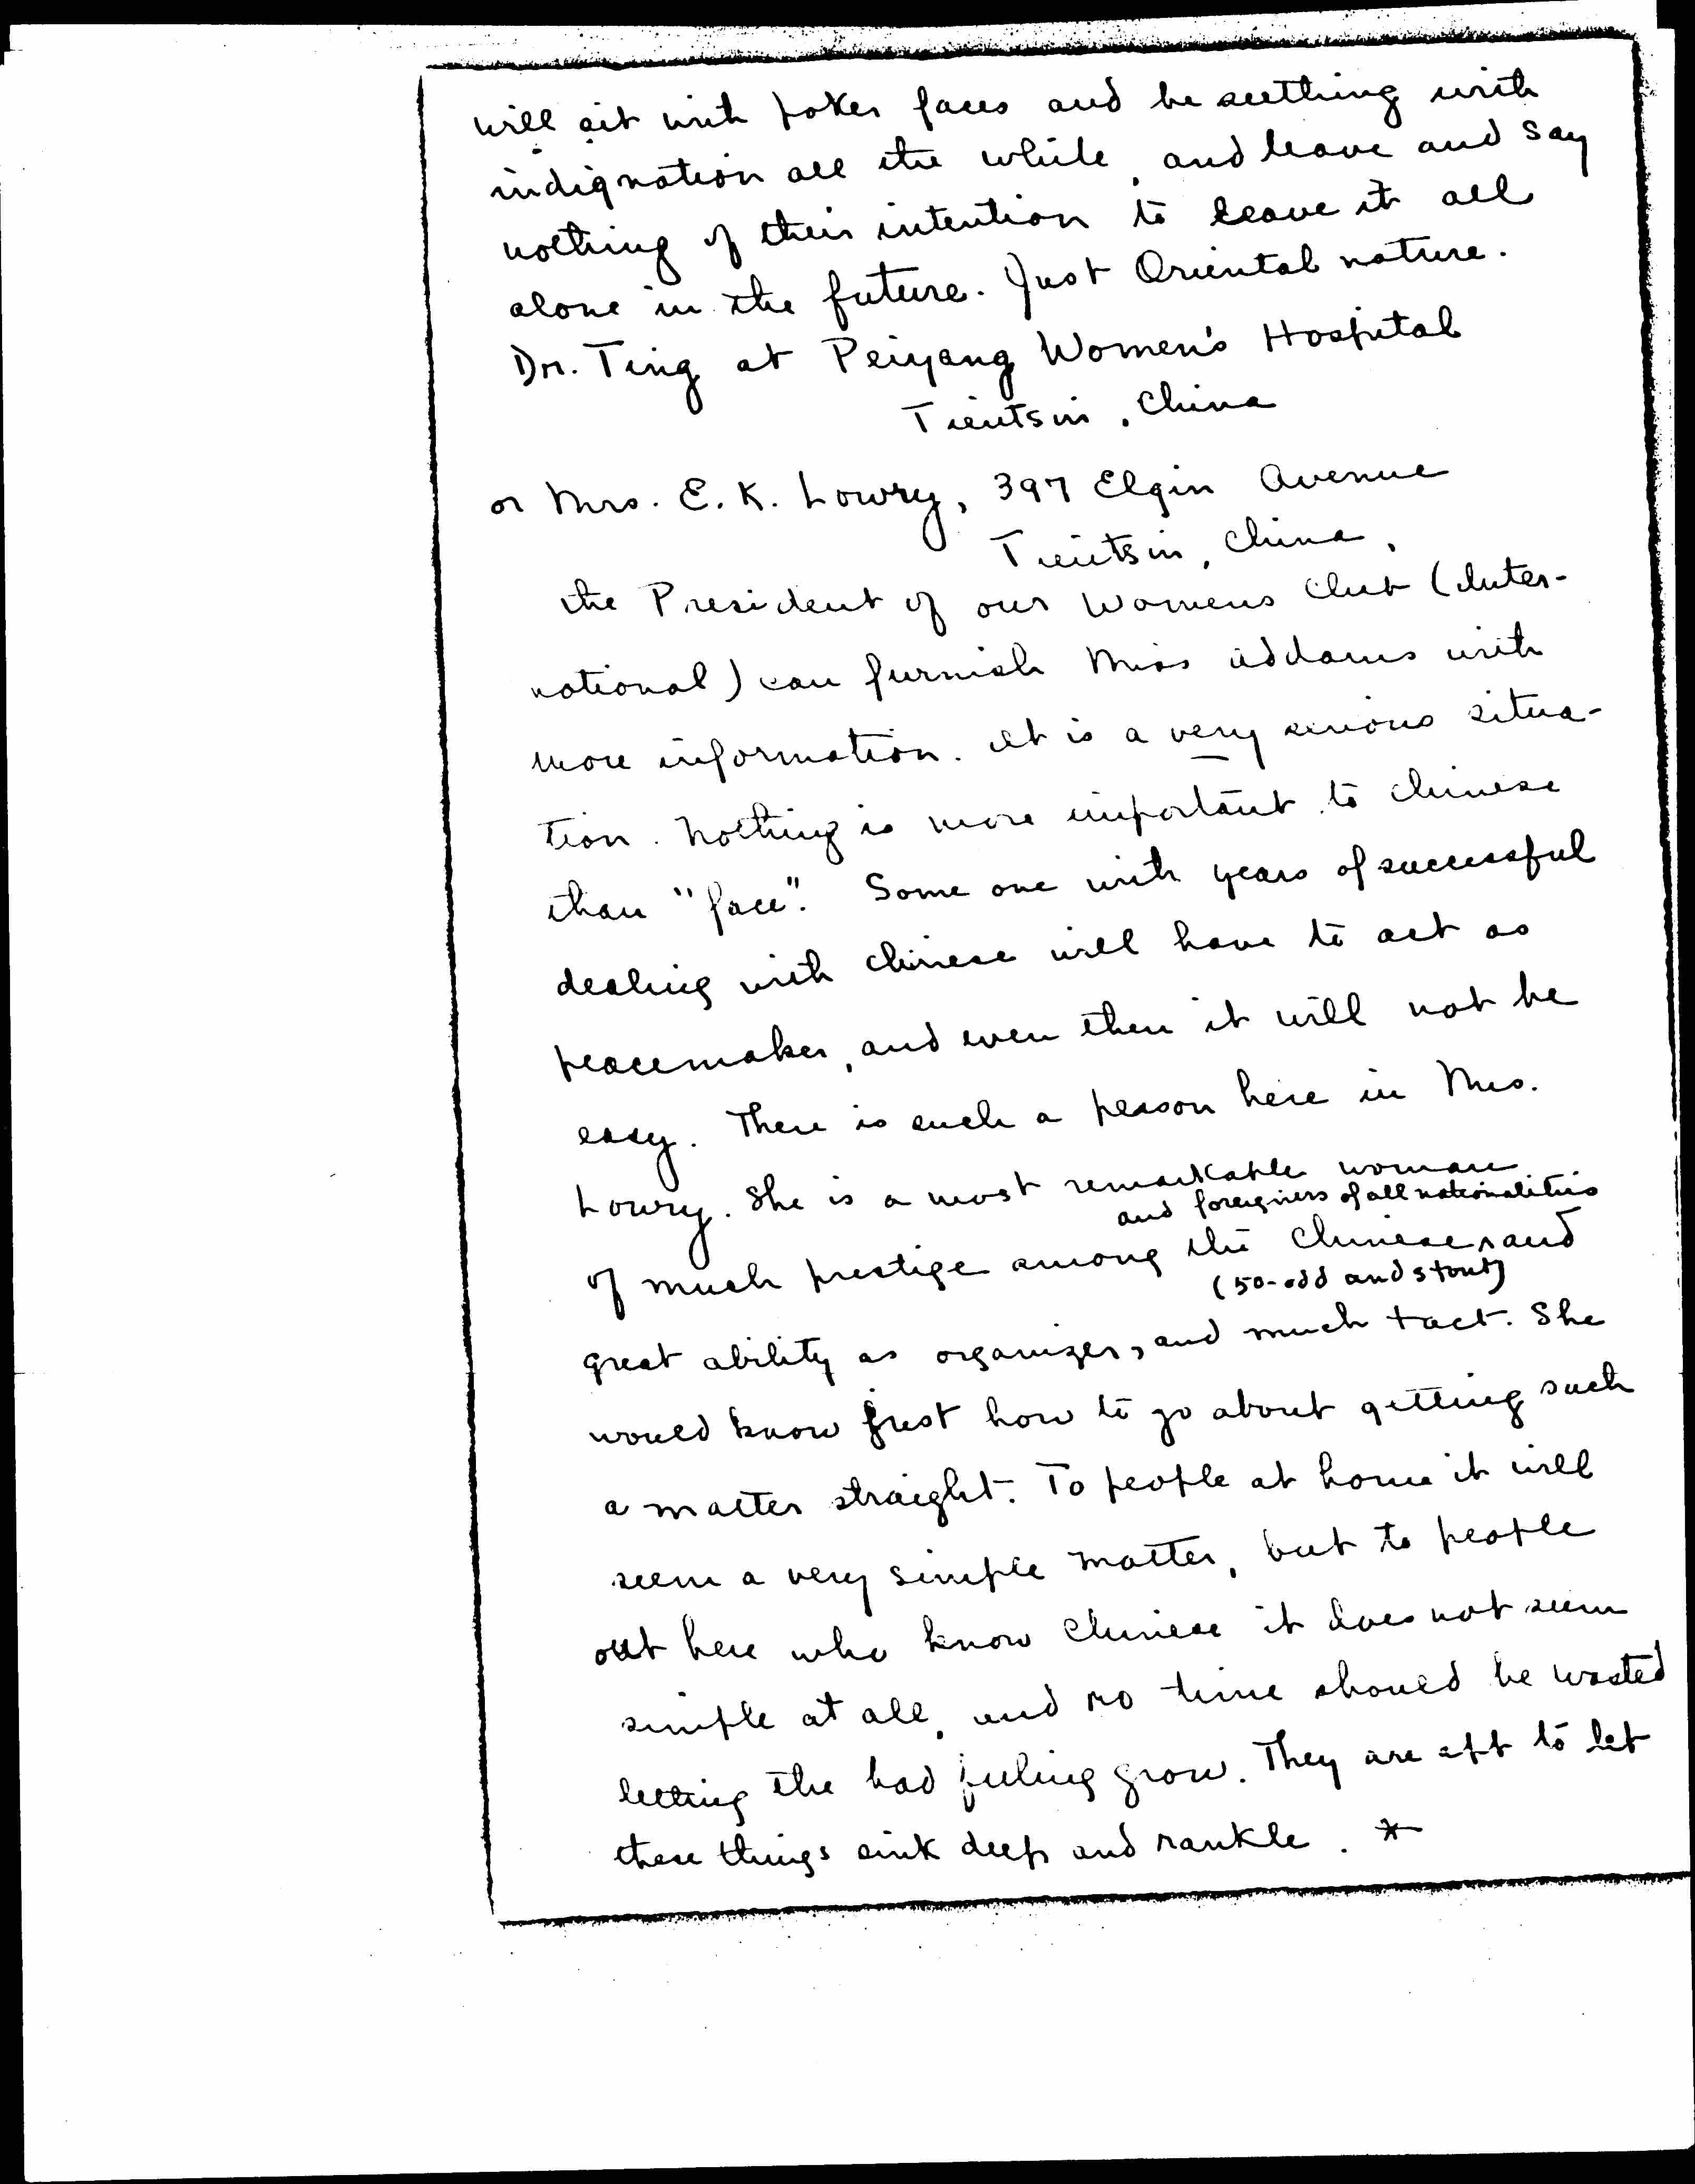 will sit with poker faces and be seething with
indignation all the while, and leave and say
nothing of their intention to leave it all
alone in the future. Just Oriental nature.
Dr. Ting at Peiyang Women's Hospital
Tientsin, China
or Mrs. E. K. Lowry, 397 Elgin Avenue
Tientsin, China,
the President of our Womens Club (Inter-
national) can furnish Miss Addams with
more information. It is a very serious situa-
tion. Nothing is more important to Chinese
than "face". Some one with years of successful
dealing with Chinese will have to act as
peacemaker, and even then it will not be
easy. There is such a person here in Mrs.
Lowry. She is a most remarkable woman
and foreigners of all nationalities
of much prestige among the Chinese ^ and
(50-odd and stout)
great ability as organizer, and much tact. She
would know just how to go about getting such
a matter straight. To people at home it will
seem a very simple matter, but to people
out here who know Chinese it does not seem
simple at all, and no time should be wasted
letting the bad feeling grow. They are apt to let
these things sink deep and rankle. *